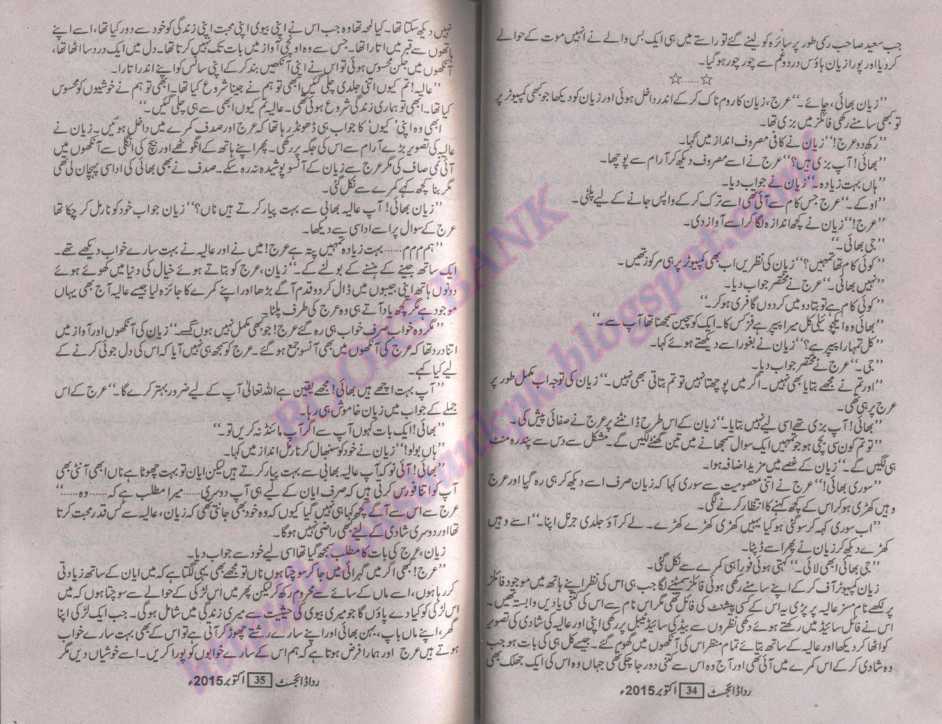 جب سعید صاحب رسمی طور پر سائرہ کو لینے گئے تو راستے میں ہی ایک بس والے نے انہیں موت کے حوالے
کر دیا اور پورا زیان ہاؤس درد و غم سے چور چور ہو گیا۔
☆.....☆
”زیان بھائی، چائے۔“ عرج، زیان کا روم ناک کر کے اندر داخل ہوئی اور زیان کو دیکھا جو کبھی کمپیوٹر پر
تو کبھی سامنے رکھی فائلز میں بزی تھا۔
”رکھ دو عرج!“ زیان نے کافی مصروف انداز میں کہا۔
”بھائی! آپ بزی ہیں؟“ عرج نے اسے مصروف دیکھ کر آرام سے پوچھا۔
”ہاں بہت زیادہ۔“ زیان نے جواب دیا۔
”اوکے۔“ عرج جس کام سے آئی تھی اسے ترک کر کے واپس جانے کے لیے پلٹی۔
”عرج!“ زیان نے کچھ اندازہ لگا کر اسے آواز دی۔
”جی بھائی۔“
”کوئی کام تھا تمہیں؟“ زیان کی نظریں اب بھی کمپیوٹر پر ہی مرکوز تھیں۔
”نہیں بھائی۔“ عرج نے مختصر جواب دیا۔
”کوئی کام ہے تو بتا دو میں کر دوں گا فری ہو کر۔“
”بھائی وہ ایکچوئیلی کل میرا پیپر ہے فزکس کا۔ ایک کوئسچن سمجھنا تھا آپ سے۔“
”کل تمہارا پیپر ہے؟“ زیان نے بغور اسے دیکھتے ہوئے کہا۔
”جی۔“ عرج نے مختصر جواب دیا۔
”اور تم نے مجھے بتایا بھی نہیں۔ اگر میں پوچھتا نہیں تو تم بتاتی بھی نہیں۔“ زیان کی توجہ اب مکمل طور پر
عرج پر ہی تھی۔
”بھائی! آپ بزی تھے اسی لیے نہیں بتایا۔“ زیان کے اس طرح ڈانٹنے پر عرج نے صفائی پیش کی۔
”تو تم کون سی بچی ہو جو تمہیں ایک سوال سمجھانے میں تین گھنٹے لگیں گے۔ مشکل سے دس سے پندرہ منٹ
ہی لگیں گے۔“ زیان کے غصے میں مزید اضافہ ہوا۔
”سوری بھائی!“ عرج نے اتنی معصومیت سے سوری کہا کہ زیان صرف اسے دیکھ کر ہی رہ گیا اور عرج
وہیں کھڑی ہو کر اس کے کچھ کہنے کا انتظار کرنے لگی۔
”اب سوری کہہ کر سو گئی ہو کیا یہیں کھڑی کھڑے کھڑے۔ لے کر آؤ جلدی جرنل اپنا۔“ اسے وہیں
کھڑے دیکھ کر زیان نے پھر اسے ڈپٹا۔
”جی بھائی! ابھی لائی۔“ کہتی ہوئی فوراً ہی کمرے سے نکل گئی۔
زیان کمپیوٹر آف کر کے اپنے سامنے رکھی ہوئی فائلز سمیٹنے لگا جب ہی اس کی نظر اپنے ہاتھ میں موجود فائلز
پر لکھے نام مسز عالیہ پر پڑی۔ اس کے کسی پیشنٹ کی فائل تھی مگر اس نام سے اس کی کتنی یادیں وابستہ تھیں۔
اس نے فائل سائیڈ میں رکھتے ہوئے دکھی نظروں سے بیڈ کی سائیڈ ٹیبل پر رکھی اپنی اور عالیہ کی شادی کی تصویر
کو اٹھا کر دیکھا اور عالیہ کے ساتھ بتائے تمام منظر اس کی آنکھوں میں گھوم گئے۔ جیسے کل ہی کی بات ہو جب
وہ شادی کر کے اس کمرے میں آئی تھی اور آج وہ اس سے کتنی دور جا چکی تھی جہاں وہ اس کی ایک جھلک بھی
رداڈائجسٹ 34 اکتوبر 2015ء
نہیں دیکھ سکتا تھا۔ کیا لمحہ تھا وہ جب اس نے اپنی بیوی اپنی محبت اپنی زندگی کو خود سے دور کیا تھا، اسے اپنے
ہاتھوں سے قبر میں اتارا تھا۔ جس سے وہ اونچی آواز میں بات تک نہیں کرتا تھا۔ دل میں ایک درد سا اٹھا تھا،
آنکھوں میں جلن محسوس ہوئی تو اس نے اپنی آنکھیں بند کر کے اپنی سانس کو اپنے اندر اتارا۔
”عالیہ! تم کیوں اتنی جلدی چلی گئیں ابھی تو ہم نے جینا شروع کیا تھا۔ ابھی تو ہم نے خوشیوں کو محسوس
کیا تھا۔ ابھی تو ہماری زندگی شروع ہوئی تھی۔ عالیہ تم کیوں ابھی سے ہی چلی گئیں۔“
ابھی وہ اپنی ’کیوں‘ کا جواب ہی ڈھونڈ رہا تھا کہ عرج اور صدف کمرے میں داخل ہوئیں۔ زیان نے
عالیہ کی تصویر بڑے آرام سے اس کی جگہ پر رکھی۔ پھر اپنے ہاتھ کے انگوٹھے اور بیچ کی انگلی سے آنکھوں میں
آئی نمی صاف کی مگر عرج سے زیان کے آنسو پوشیدہ نہ رہ سکے۔ صدف نے بھی بھائی کی اداسی پہچان لی تھی
مگر بنا کچھ کہے کمرے سے نکل گئی۔
”زیان بھائی! آپ عالیہ بھابی سے بہت پیار کرتے ہیں ناں؟“ زیان جواب خود کو نارمل کر چکا تھا
عرج کے سوال پر اسے اداسی سے دیکھا۔
”ہم م م م...... بہت زیادہ تمہیں پتہ ہے عرج! میں نے اور عالیہ نے بہت سارے خواب دیکھے تھے۔
ایک ساتھ جینے کے ہنسنے کے بولنے کے۔“ زیان، عرج کو بتاتے ہوئے خیال کی دنیا میں کھوئے ہوئے
دونوں ہاتھ اپنی جیبوں میں ڈال کر دو قدم آگے بڑھا اور اپنے کمرے کا جائزہ لیا جیسے عالیہ آج بھی یہاں
موجود ہے مگر کچھ یاد آتے ہی وہ عرج کی طرف پلٹا۔
”مگر وہ خواب صرف خواب ہی رہ گئے عرج! جو کبھی مکمل نہیں ہوں گے۔“ زیان کی آنکھوں اور آواز میں
اتنا درد تھا کہ عرج کی آنکھوں میں بھی آنسو جمع ہو گئے۔ عرج کو سمجھ ہی نہیں آیا کہ اس کی دل جوئی کرنے کے
لیے کیا کہے۔
”آپ بہت اچھے ہیں بھائی! مجھے یقین ہے اللہ تعالیٰ آپ کے لیے ضرور بہتر کرے گا۔“ عرج کے اس
جملے کے جواب میں زیان خاموش ہی رہا۔
”بھائی! ایک بات کہوں آپ سے اگر آپ مائنڈ نہ کریں تو۔“
”ہاں بولو!“ زیان نے خود کو سنبھال کر نارمل انداز میں کہا۔
”بھائی! آئی نو کہ آپ عالیہ بھابی سے بہت پیار کرتے ہیں لیکن ایان تو بہت چھوٹا ہے ناں ابھی آنٹی بھی
آپ کو اتنا فورس کرتی ہیں کہ صرف ایان کے لیے ہی آپ دوسری...... میرا مطلب ہے کہ...... وہ......“
عرج سے اس سے آگے کچھ کہا ہی نہیں گیا کیوں کہ وہ خود بھی جانتی تھی کہ زیان، عالیہ سے کس قدر محبت کرتا
تھا اور دوسری شادی کے لیے کبھی راضی نہیں ہوگا۔
زیان، عرج کی بات کا مطلب سمجھ گیا تھا اسی لیے خود سے جواب دیا۔
”عرج! کبھی اگر میں گہرائی میں جا کر سوچتا ہوں ناں تو مجھے بھی یہی لگتا ہے کہ میں ایان کے ساتھ زیادتی
کر رہا ہوں، اسے ماں کے سائے سے محروم رکھ کر لیکن پھر میں اس لڑکی کے حوالے سے سوچتا ہوں کہ میں
اس لڑکی کو کیا دے پاؤں گا جو میری بیوی کی حیثیت سے میری زندگی میں شامل ہوگی۔ جب ایک لڑکی اپنا
گھر، اپنے ماں باپ، بہن بھائی اور اپنے سارے رشتے چھوڑ کر آتی ہے تو اس کے بھی بہت سارے خواب
ہوتے ہیں عرج اور ہمارا فرض ہوتا ہے کہ ہم اس کے سارے خوابوں کو پورا کریں۔ اسے خوشیاں دیں مگر
رداڈائجسٹ 35 اکتوبر 2015ء